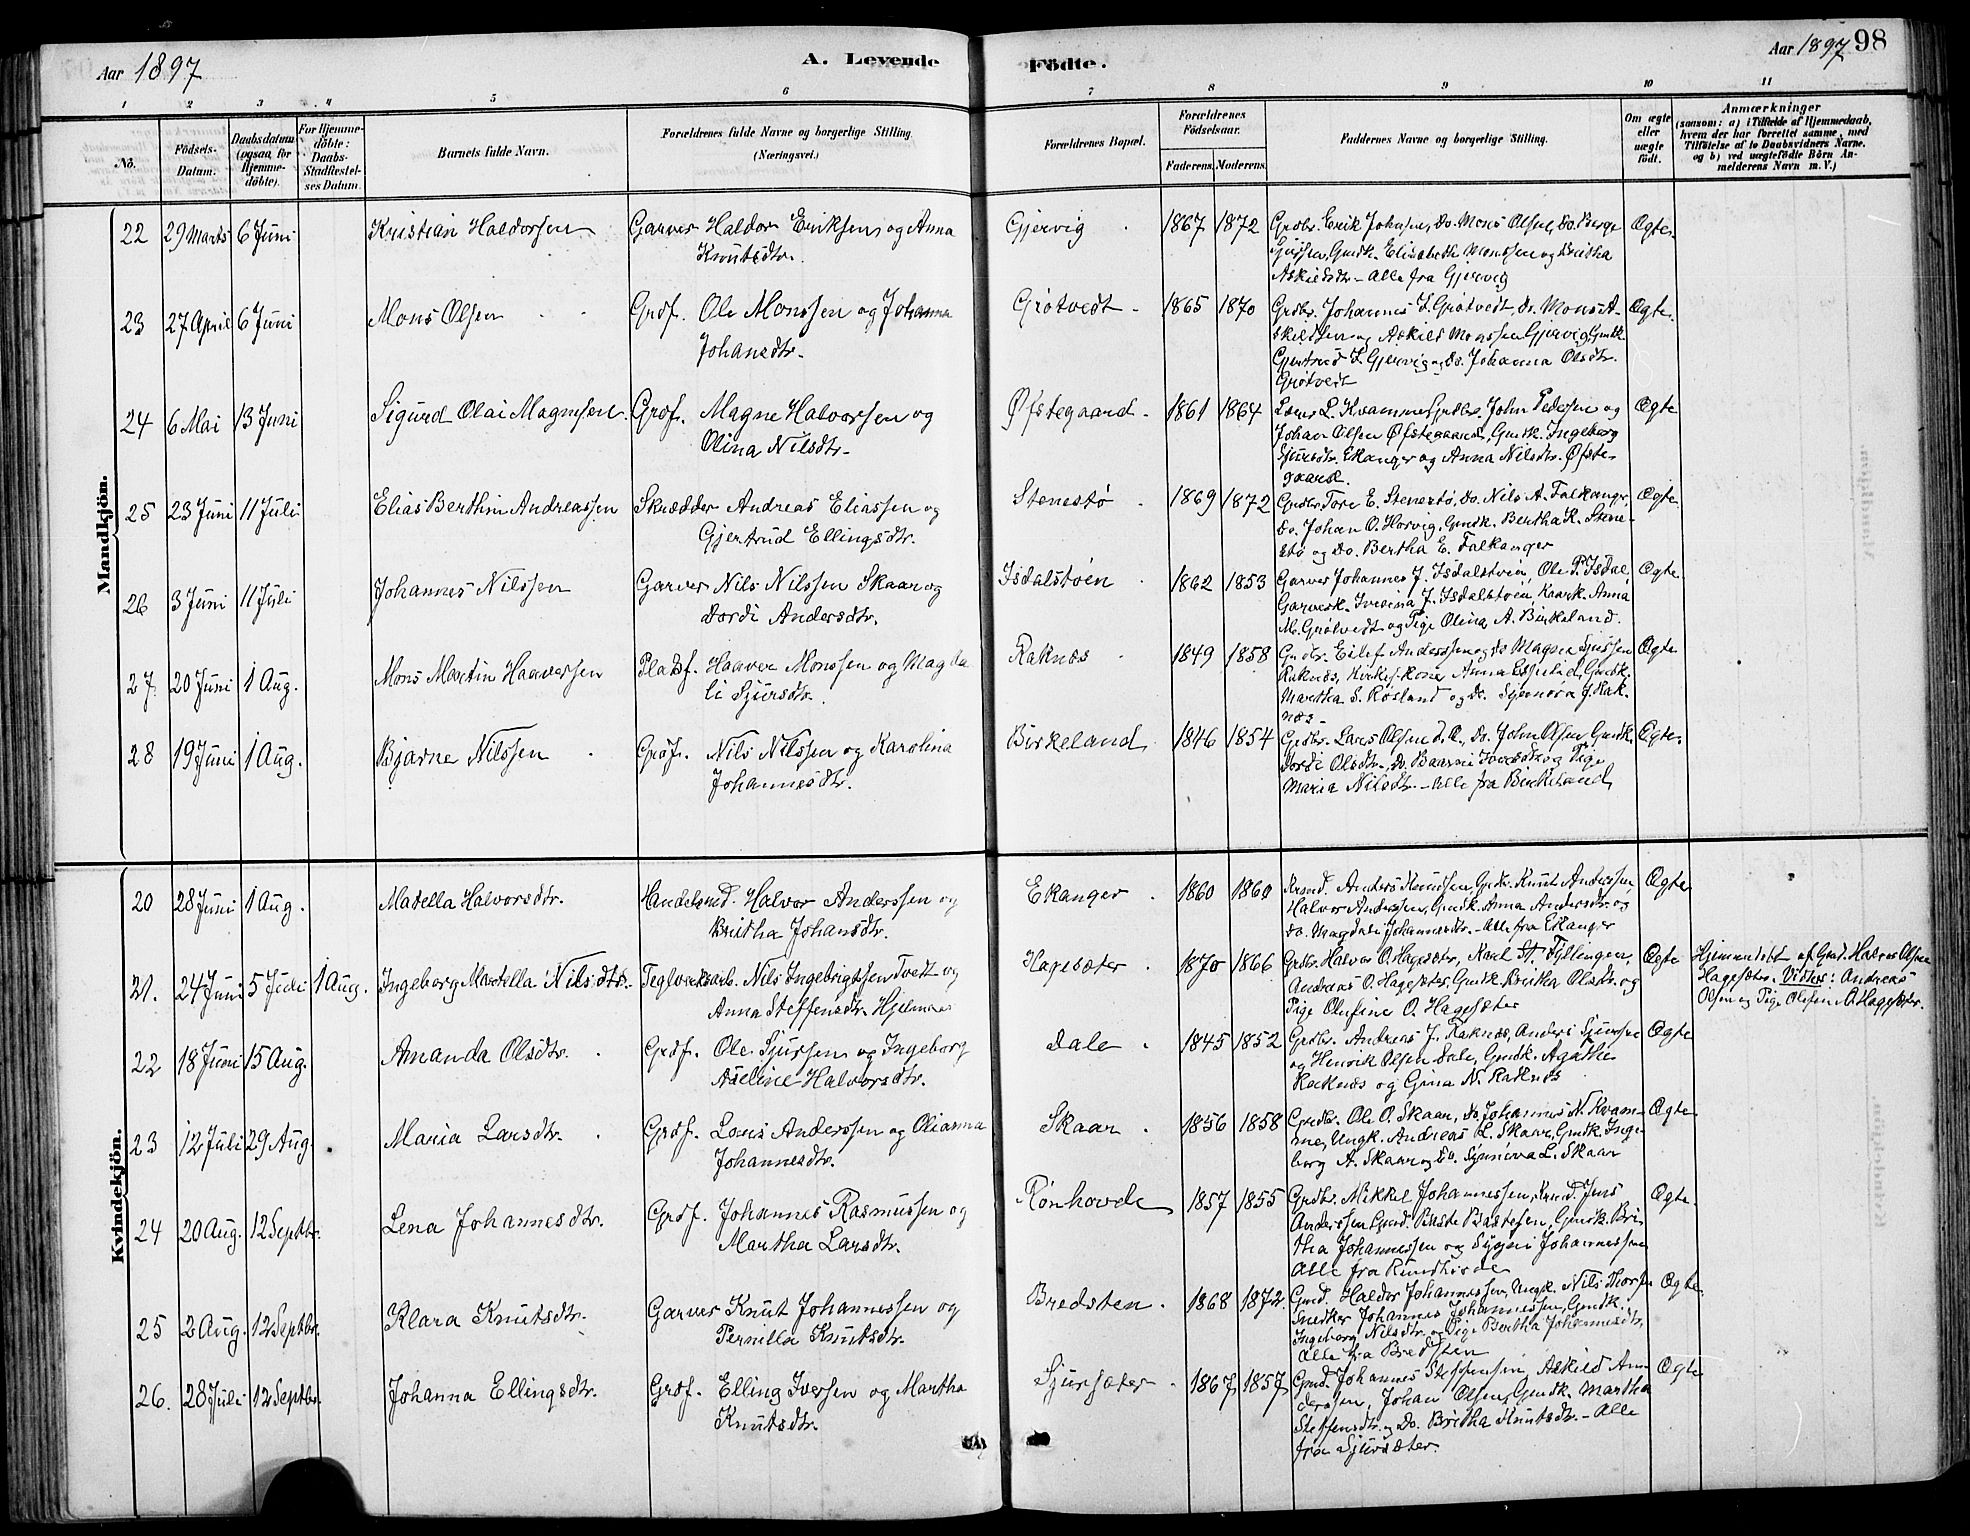 Aar 1897
A. Levende
Födte.
Aar 1897 98
1 2 3 4 5 6 7 8 9 10 11
No.
Födsels-
Datum.
Daabsdatum
(ogsaa for
Hjemme-
döbte).
For Hjemme-
döbte:
Daabs-
Stadfæstel-
ses Datum.
Barnets fulde Navn.
Forældrenes fulde Navne og borgerlige Stilling.
(Næringsvei.)
Forældrenes Bopæl.
Forældrenes
Födselsaar.
Faderens. Moderens.
Faddernes Navne og borgerlige Stilling.
Om ægte
eller
uægte
födt.
Anmærkninger
(saasom: a) i Tilfælde af Hjemmedaab,
hvem der har forrettet samme, med
Tilföielse af to Daabsvidners Navne.
og b) ved uægtefödte Börn An-
melderens Navn m. V.)
Mandkjön.
22 29 Marts 6 Juni Kristian Haldorsen Garver Haldor Eriksen og Anna
Knutsdtr.
Gjervig 1867 1872 Grdbr. Erik Johnsen, Do. Mons Olsen, Do. Berge
Sjursen, Gmdk. Elisabeth Monssen og Britha
Askildsdtr. - Alle fra Gjervig
Ægte.
23 27 April 6 Juni Mons Olsen Grdf. Ole Monssen og Johanna
Johansdtr.
Grøtvedt 1865 1870 Grdbr. Johannes I. Grøtvedt, Do. Mons A-
skildsen og Askild Monssen Gjervig, Gmdk.
Gjertrud I. Gjervig og Do. Johanna Olsdtr.
Grøtvedt
Ægte.
24 6 Mai 13 Juni Sigurd Olai Magnesen Grdf. Magne Halvorsen og
Olina Nilsdtr.
Øfstegaard 1861 1864 Lars L. Kvamme, Grdbr. John Pedersen og
Johan Olsen Øfstegaard, Gmdk. Ingeborg
Sjursdtr. Ekanger og Anna Nilsdtr. Øfste-
gaard.
Ægte
25 23 Juni 11 Juli Elias Berthin Andreassen Skrædder Andreas Eliassen og
Gjertrud Ellingsdtr.
Stenestø 1869 1872 Grdbr. Tore E. Stenestø, Do. Nils A. Falkanger,
Do. Johan O. Horvig, Gmdk. Bertha K. Stene-
stø og Do. Bertha E. Falkanger
Ægte
26 3 Juni 11 Juli Johannes Nilssen Garver Nils Nilssen Skaar og
Dordi Andersdtr.
Isdalstøen 1862 1853 Garver Johannes J. Isdalstøen, Ole P. Isdal,
Garversk. Iverina J. Isdalstøen, Kaark. Anna
M. Grøtvedt og Pige Olina A. Birkeland.
Ægte.
27 20 Juni 1 Aug. Mons Martin Haaversen Pladsf. Haaver Monssen og Magda
li Sjursdtr.
Raknæs 1849 1858 Grdbr. Eilef Anderssen og Do Magne Sjurssen
Raknæs, Anna Gmdk.
Martha S. Rosland og Do. Synneva J. Rak-
næs
Ægte
28 19 Juni 1 Aug. Bjarne Nilssen Grdf. Nils Nilssen og Karolina
Johannesdtr.
Birkeland 1846 1854 Grdbr. Lars Olsen d. Æ., Do. John Olsen, Gmdk.
Dordi Olsdtr., Do. Baarni Iversdtr. og Pige
Maria Nilsdtr. - Alle fra Birkeland
Ægte.
Kvindekjön.
20 28 Juni 1 Aug. Matella Halvorsdtr. Handelsmd. Halvor Anderssen og
Britha Johansdtr.
Ekanger 1860 1860 Anders Knudsen, Grdbr. Knut Anderssen,
Halvor Anderssen, Gmdk. Anna Andersdtr. og
Do. Magdali Johannesdtr. - Alle fra Ekanger
Ægte
21. 24 Juni 5 Juli 1 Aug. Ingeborg Martella Nilsdtr. Teglverksarb. Nils Ingebrigtsen Tvedt og
Anna Steffensdtr. Hjelmaas
Hagesæter 1870 1866 Grdbr. Halvor O. Hagesæter, Karl St. Fyllingen,
Andreas O. Hagesæter, Gmdk. Britha Olsdtr. og
Pige Olufine O. Hagesæter
Ægte
Hjemmedøbt af Gmd. Halvor Olsen
Hagesæter. Vidner: Andreas
Olsen og Pige Olufine O. Hagesæter.
22 18 Juni 15 Aug. Amanda Olsdtr. Grdf. Ole Sjurssen og Ingeborg
Adeline Halvorsdtr.
Dale 1845 1852 Grdbr. Andreas J. Raknæs, Anders Sjurssen
og Henrik Olsen Dale, Gmdk. Agathe
Raknæs og Gina N. Raknæs
Ægte
23 12 Juli 29 Aug. Maria Larsdtr. Grdf. Lars Anderssen og Olianna
Johannesdtr.
Skaar 1856 1858 Grdbr. Ole O. Skaar, Do. Johannes N. Kvam-
me, Ungk. Andreas L. Skaar, Gmdk. Inge-
borg A. Skaar og Do. Synneva L. Skaar
Ægte
24 20 Aug. 12 Septbr. Lena Johannesdtr. Grdf. Johannes Rasmussen og
Martha Larsdtr.
Rønhovde 1857 1855 Grdbr. Mikkel Johannessen, Jens
Anderssen, Gmd. Baste Bastesen, Gmdk. Bri
tha Johannessen og Johannessen
Alle fra Rundhovde
Ægte.
25 2 Aug. 12 Septbr. Klara Knutsdtr. Garver Knut Johannessen og
Pernilla Knutsdtr.
Bredsten 1868 1872 Gmd. Haldor Johannessen, Ungk. Nils Thors
Snedker Johannes Johannessen, Gmdk.
Ingeborg Nilsdtr. og Pige Bertha Johannesdtr,
Alle fra Bredsten
Ægte.
26. 28 Juli 12 Septbr. Johanna Ellingsdtr. Grdf. Elling Iversen og Martha
Knutsdtr.
Sjursæter 1867 1857 Gmd. Johannes Steffensen, Askild An-
derssen, Johan Olsen, Gmdk. Martha
Steffensdtr. og Do. Britha Knutsdtr. - Alle
fra Sjursæter.
Ægte